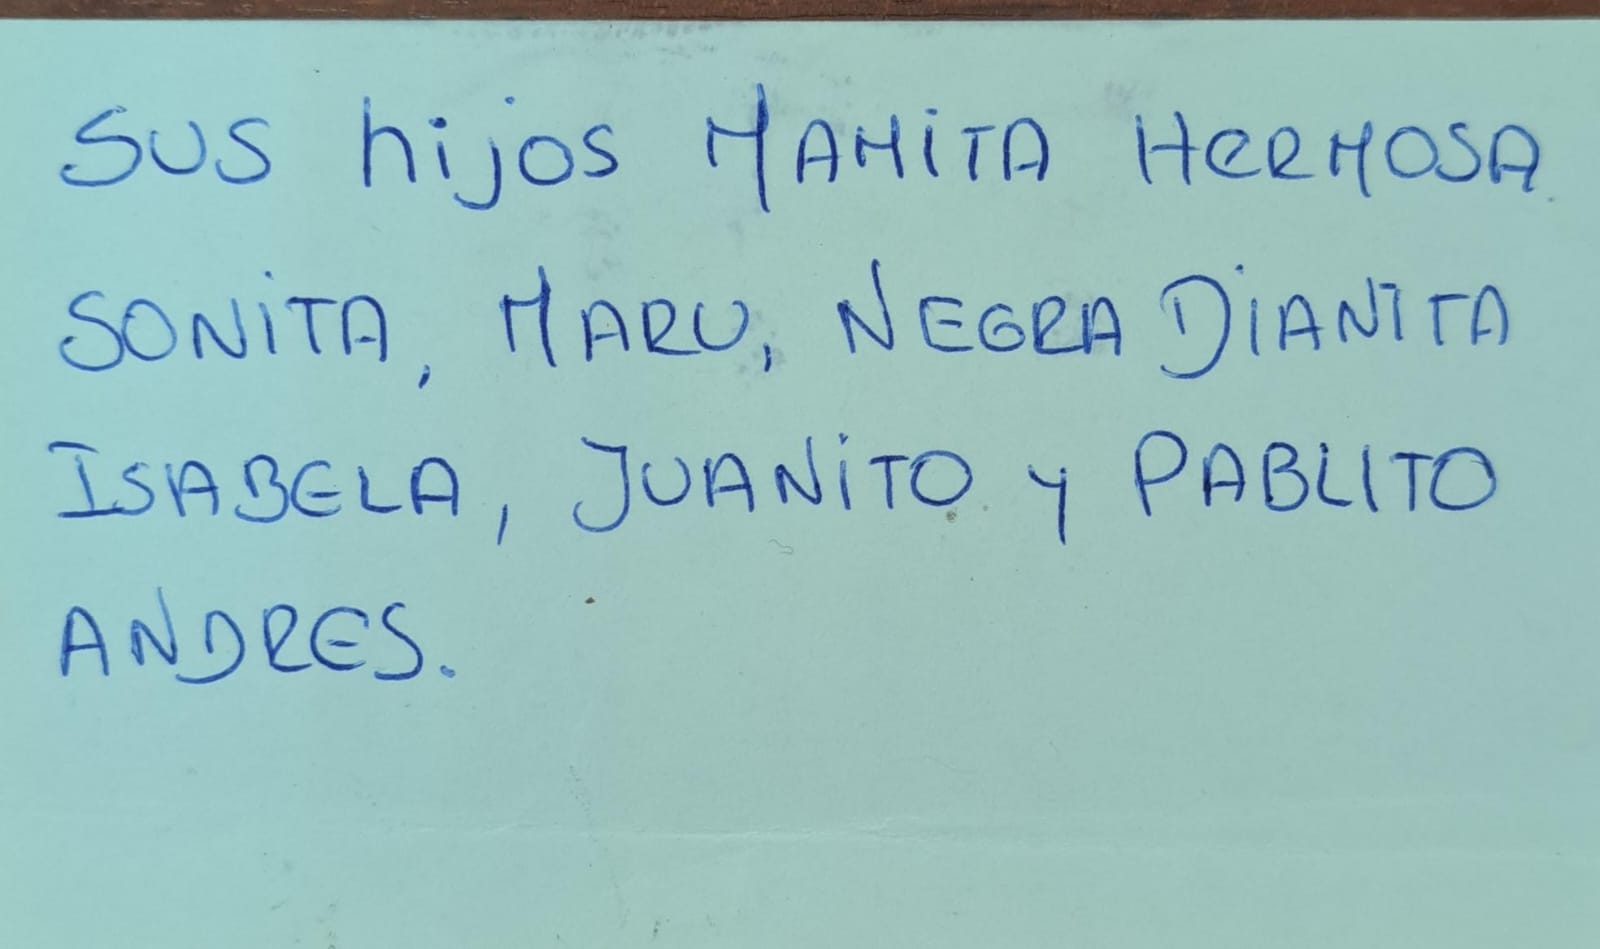 SUS hijos MAMiTA HeRMOSA.
SONiTA, MARU, NEGRA DiANiTA
ISABELA, JUANiTO y PABLITO
ANDRES.